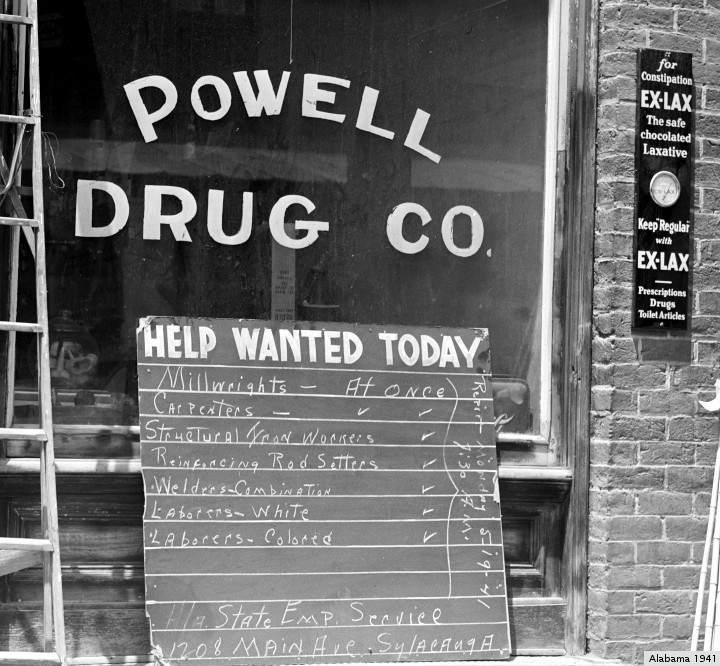 POWELL
DRUG CO.
HELP WANTED TODAY
Millwrights - At Once
Carpenters - ✓ ✓
Structural Iron Workers ✓
Reinforcing Rod Setters ✓
Welders-Combination ✓
Laborers-White ✓
Laborers-Colored ✓
Report Monday 5-19-41
7:30 A.M.
Ala State Emp. Service
1208 Main Ave Sylacauga
for
Constipation
EX-LAX
The safe
chocolated
Laxative
Keep "Regular"
with
EX-LAX
Prescriptions
Drugs
Toilet Articles
Alabama 1941